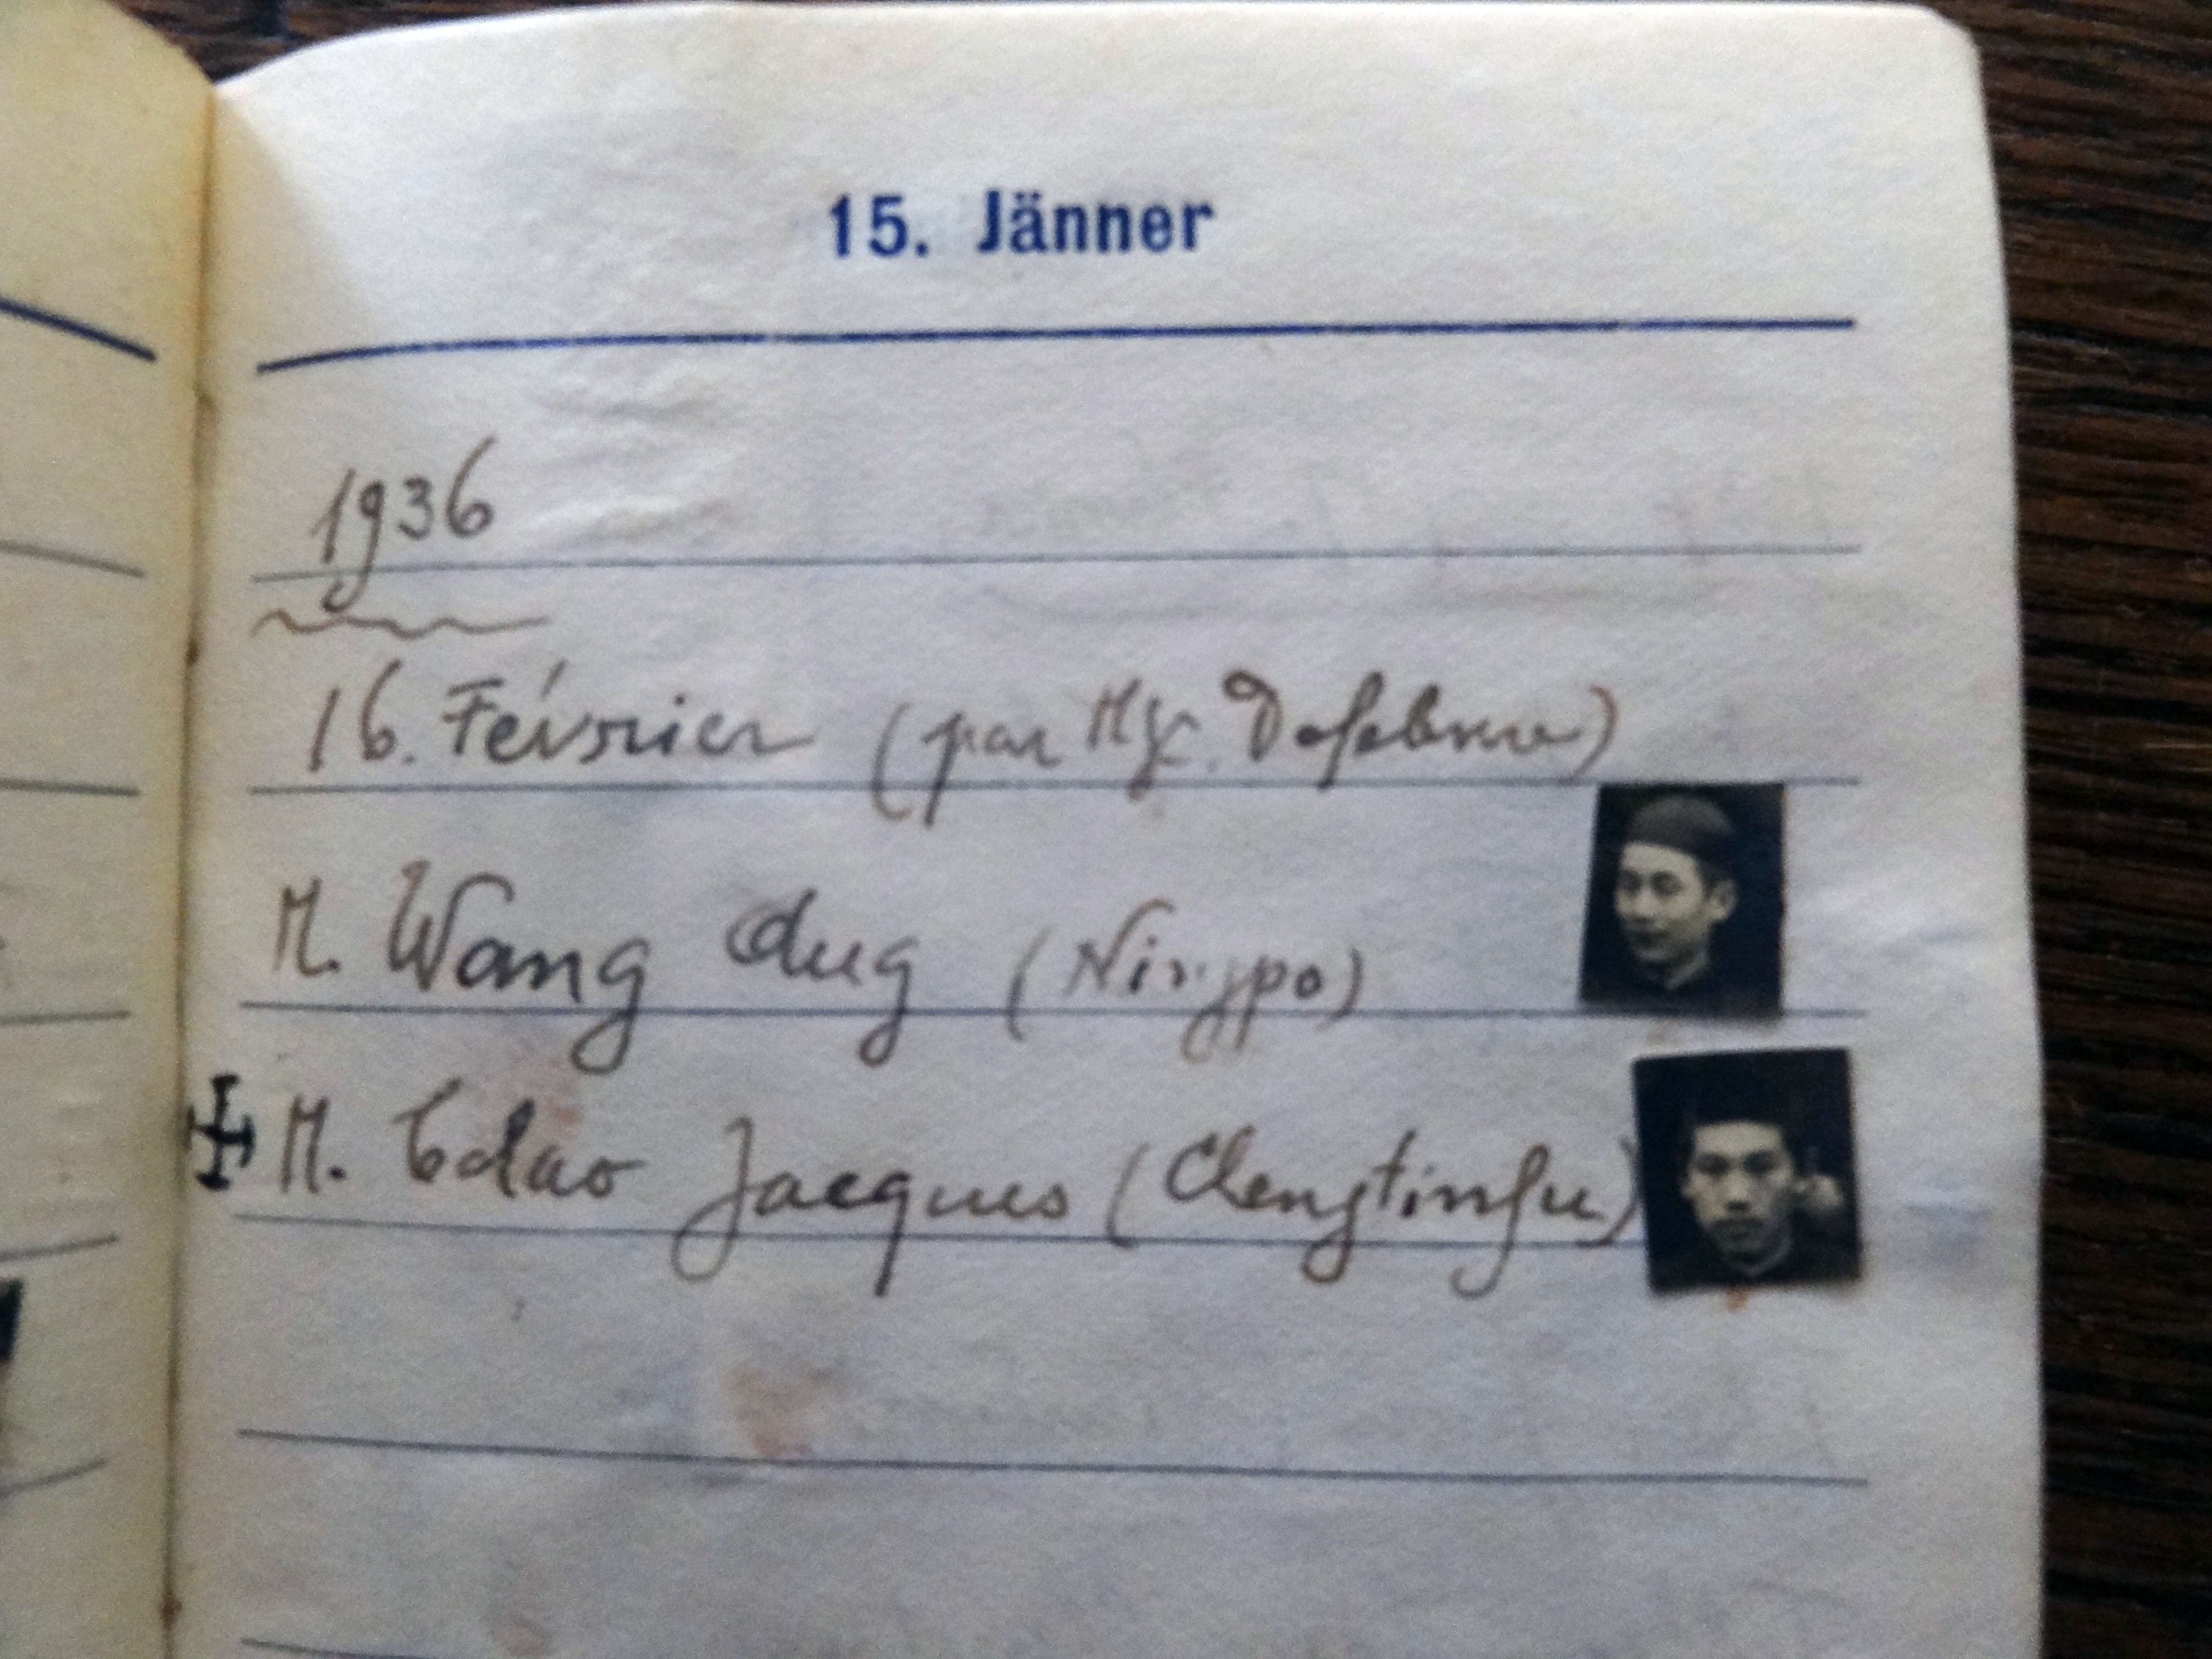 15. Jänner
1936
16. Février (par Mgr. Defebvre)
M. Wang Aug (Ningpo)
M. Jacques (Chengtingfu)